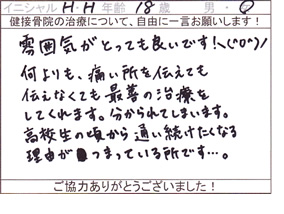 イニシャル H・H 年齢 18 歳 男・女
健接骨院の治療について、自由に一言お願いします！
雰囲気がとっても良いです！＼(^o^)／
何よりも、痛い所を伝えても
伝えなくても最善の治療を
してくれます。分かられてしまいます。
高校生の頃から通い続けたくなる
理由がつまっている所です…。
ご協力ありがとうございました！